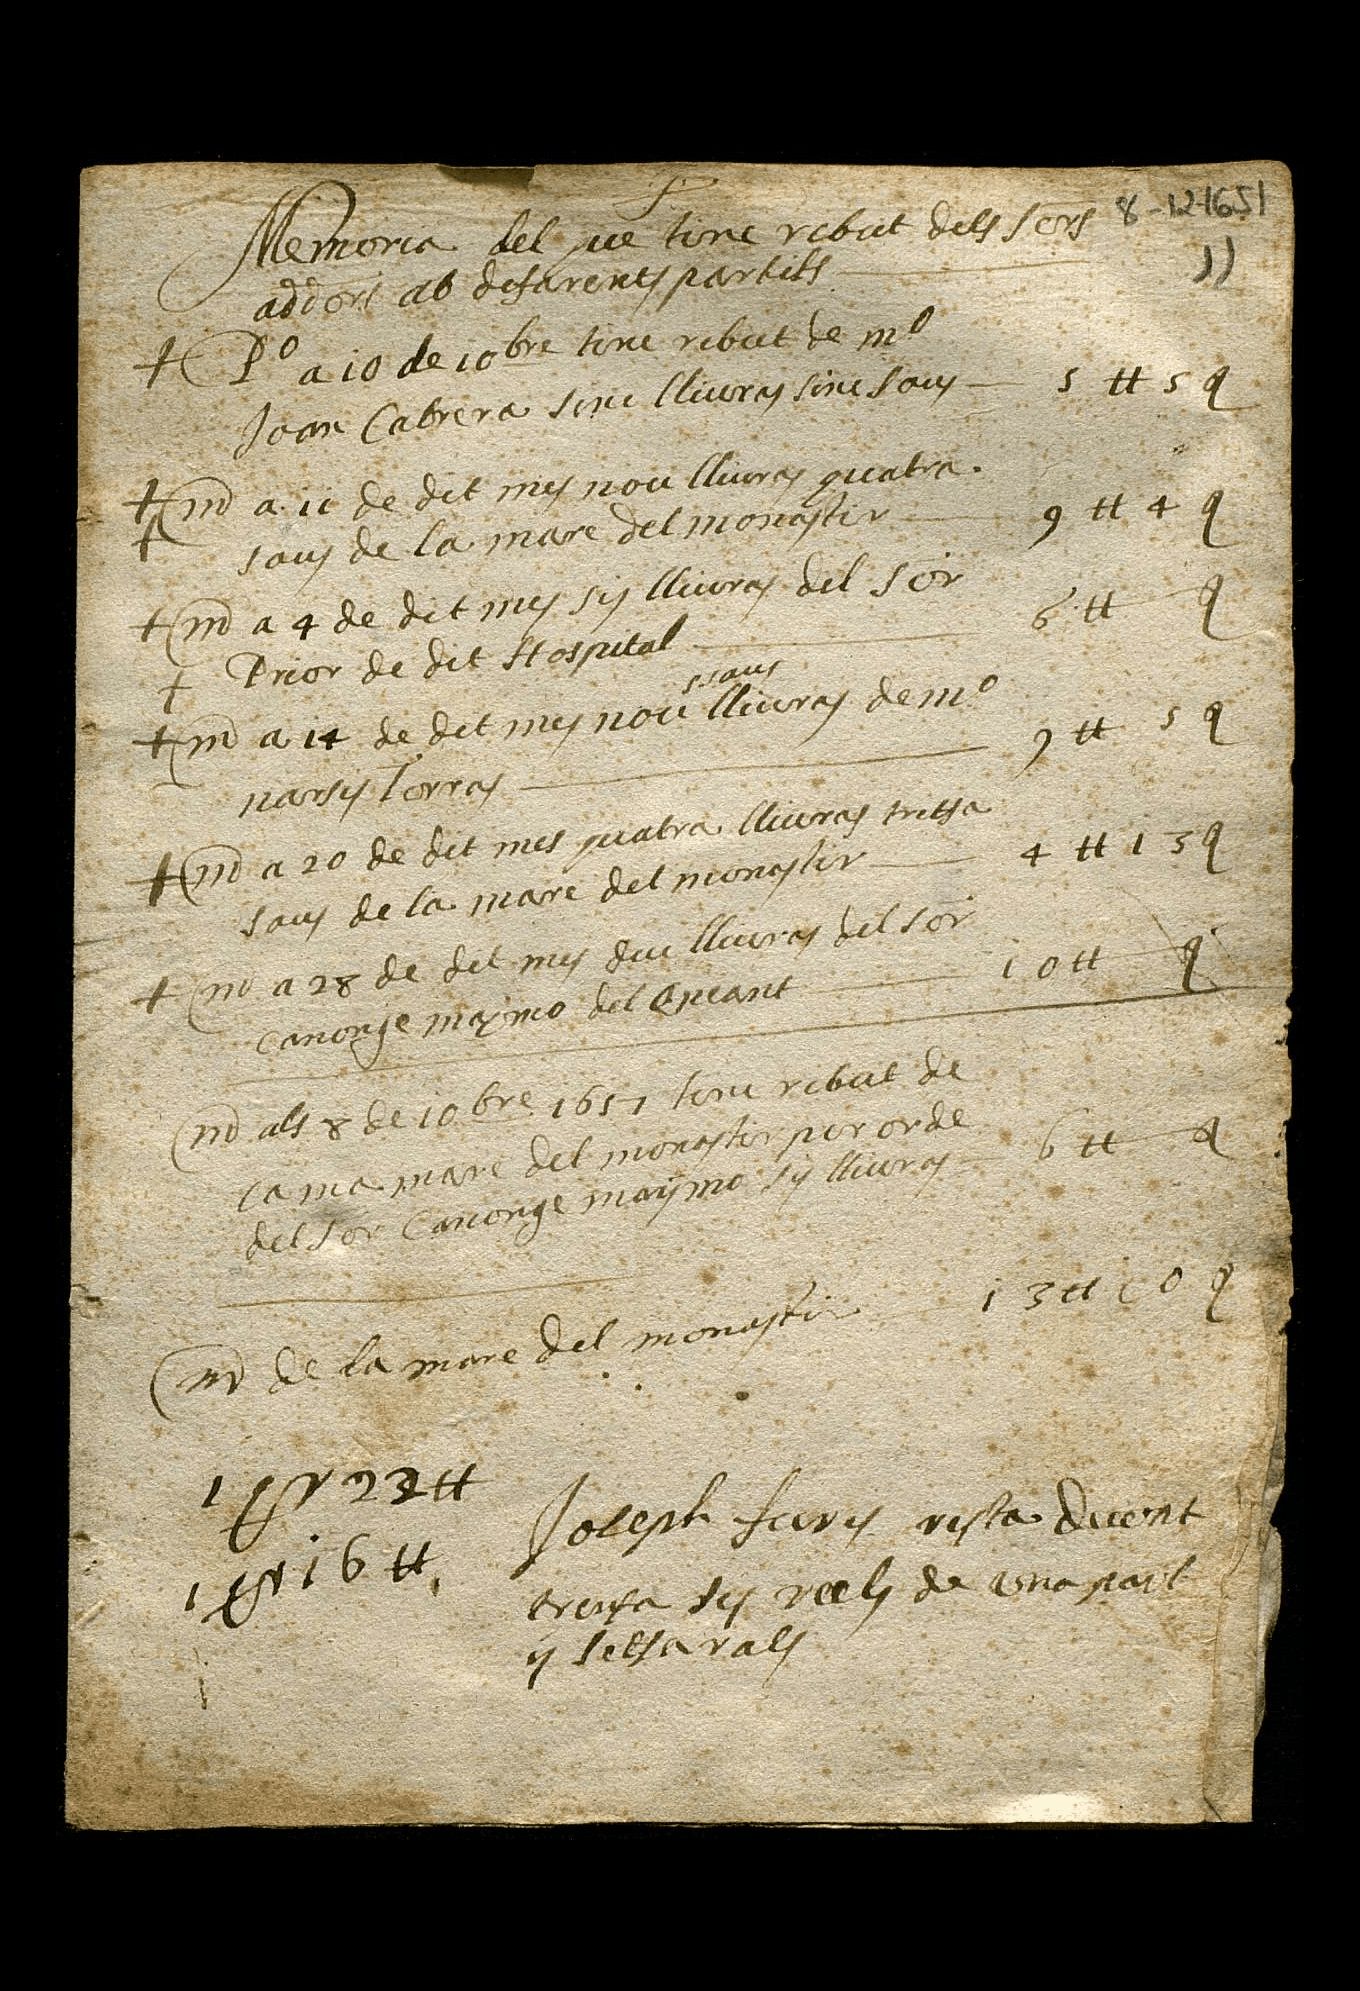 8-12-1651
11
Memoria del que tinc rebut dels Sors
addors ab difarents partits
Po a 10 de 10bre tinc rebut de mo
Joan Cabrera sinc lliuras sinc sous 5 tt 5 q
md a 11 de dit mes nou lliuras quatra
sous de la mare del monastir 9 tt 4 q
md a 4 de dit mes sis lliuras del Sor
Prior de dit Hospital 6 tt q
5 sous
md a 14 de dit mes nou lliuras de mo
narsis Torras 9 tt 5 q
md a 20 de dit mes quatra lliuras tretsa
sous de la mare del monastir 4 tt 13 q
md a 28 de dit mes deu lliuras del Sor
Canonge maymo del 10 tt q
md als 8 de 10bre 1651 tinc rebut de
la ma mare del monastir per orde
del Sor Canonge maymo sis lliuras 6 tt q
md de la mare del monastir 13 tt 10 q
Joseph resta
sis reels de una part
y setsa rals